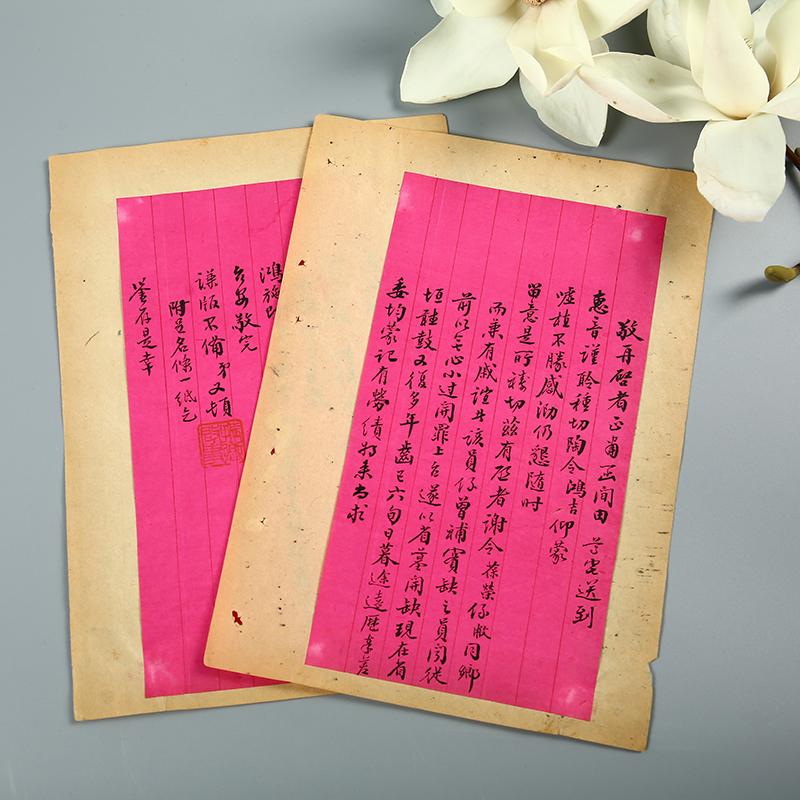 敬再啓者正肅函間由 尊宅送到
惠音謹聆種切陶令鴻吉仰蒙
噓植不勝感泐仍懇隨時
留意是所禱切茲有啟者謝令葆榮係敝同鄉
而兼有戚誼
該員係曾補實缺之員聞從
前以
小過開罪上台遂以省墓開缺現在省
垣
鼓又復多年齒已六旬日暮途遠歷奉差
委均蒙記有勞績
求
鴻
台安敬完
謙版不備弟又頓
附呈名條一紙乞
詧存是幸